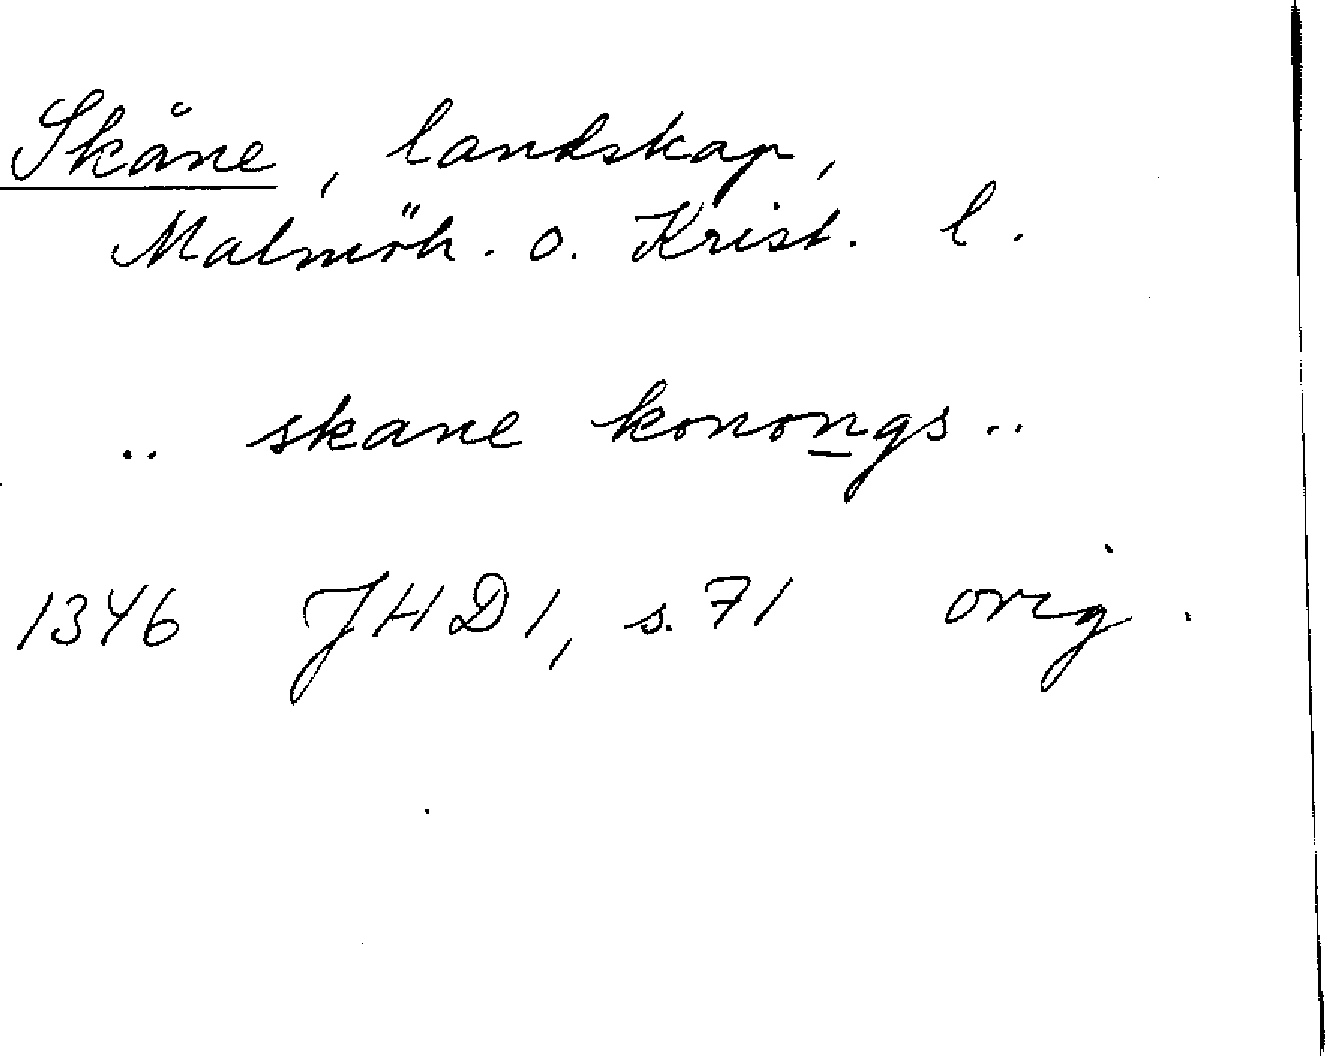 Skåne, landskap,
Malmöh. o. Krist. l.
.. skane konongs ..
1346 JHD 1, s. 71 orig.